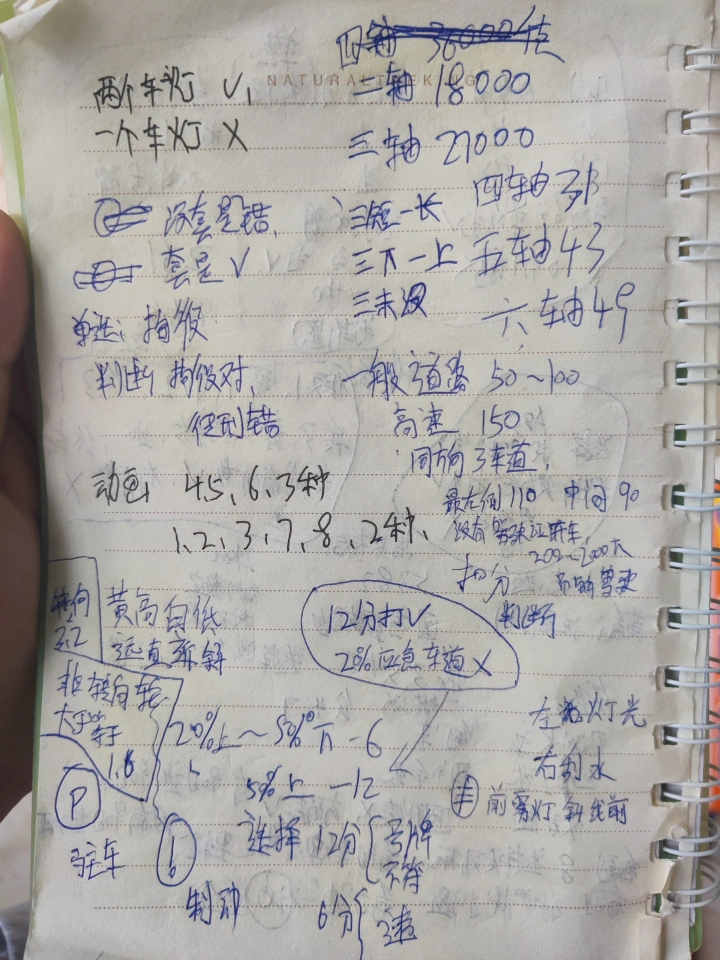 NATURAL
两个车灯 √,
一个车灯 X
二轴 18000
三轴 27000
四轴 31
五轴 43
六轴 49
没套是错,
套是 √
三短一长
三下一上
三未没
单选:指级
判断 指级对,
但刑错
一般道路 50~100
高速 150
同向3车道,
最左侧 110 中间 90
没有 驾驶证开车,
200~2000
扣分
动画 4、5、6、3种
1、2、3、7、8、2种、
转向
2.2
黄高白低
远直
12分打√
20% 应急车道 X
非转向轮
大于等于
1.6
20%上~50%下 -6
50%上 -12
左 灯光
右刮水
前雾灯 斜线前
P
驻车
制动
选择 12分 号牌
不符
6分